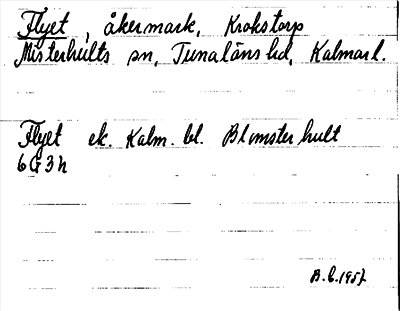 Flyet, åkermark, Krokstorp
Misterhults sn, Tunaläns hd, Kalmar l.
Flyet ek. Kalm. bl. Blomsterhult
6G3h
B.L.1957